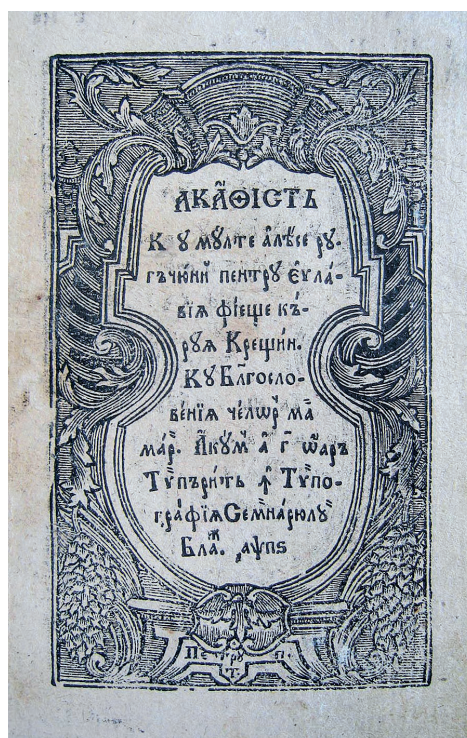 АКАѲІСТЬ
К у мꙋлте а҆лѣсе рꙋ-
гъчю́нй пентрꙋ Еѵла-
вїѧ фїеще къ-
рꙋѧ Крещи́н.
Кꙋ Бл҃госло-
ве́нїѧ че́лѡр ма
ма́р. А҆кꙋм а҆ г҃ ѡ҆аръ
Тѷпъри́ть ꙟ Тѷпо-
гра́фїѧ Семина́рюлꙋ
Бла́ж. ҂аѱпѕ
Петрꙋ П.
Т.